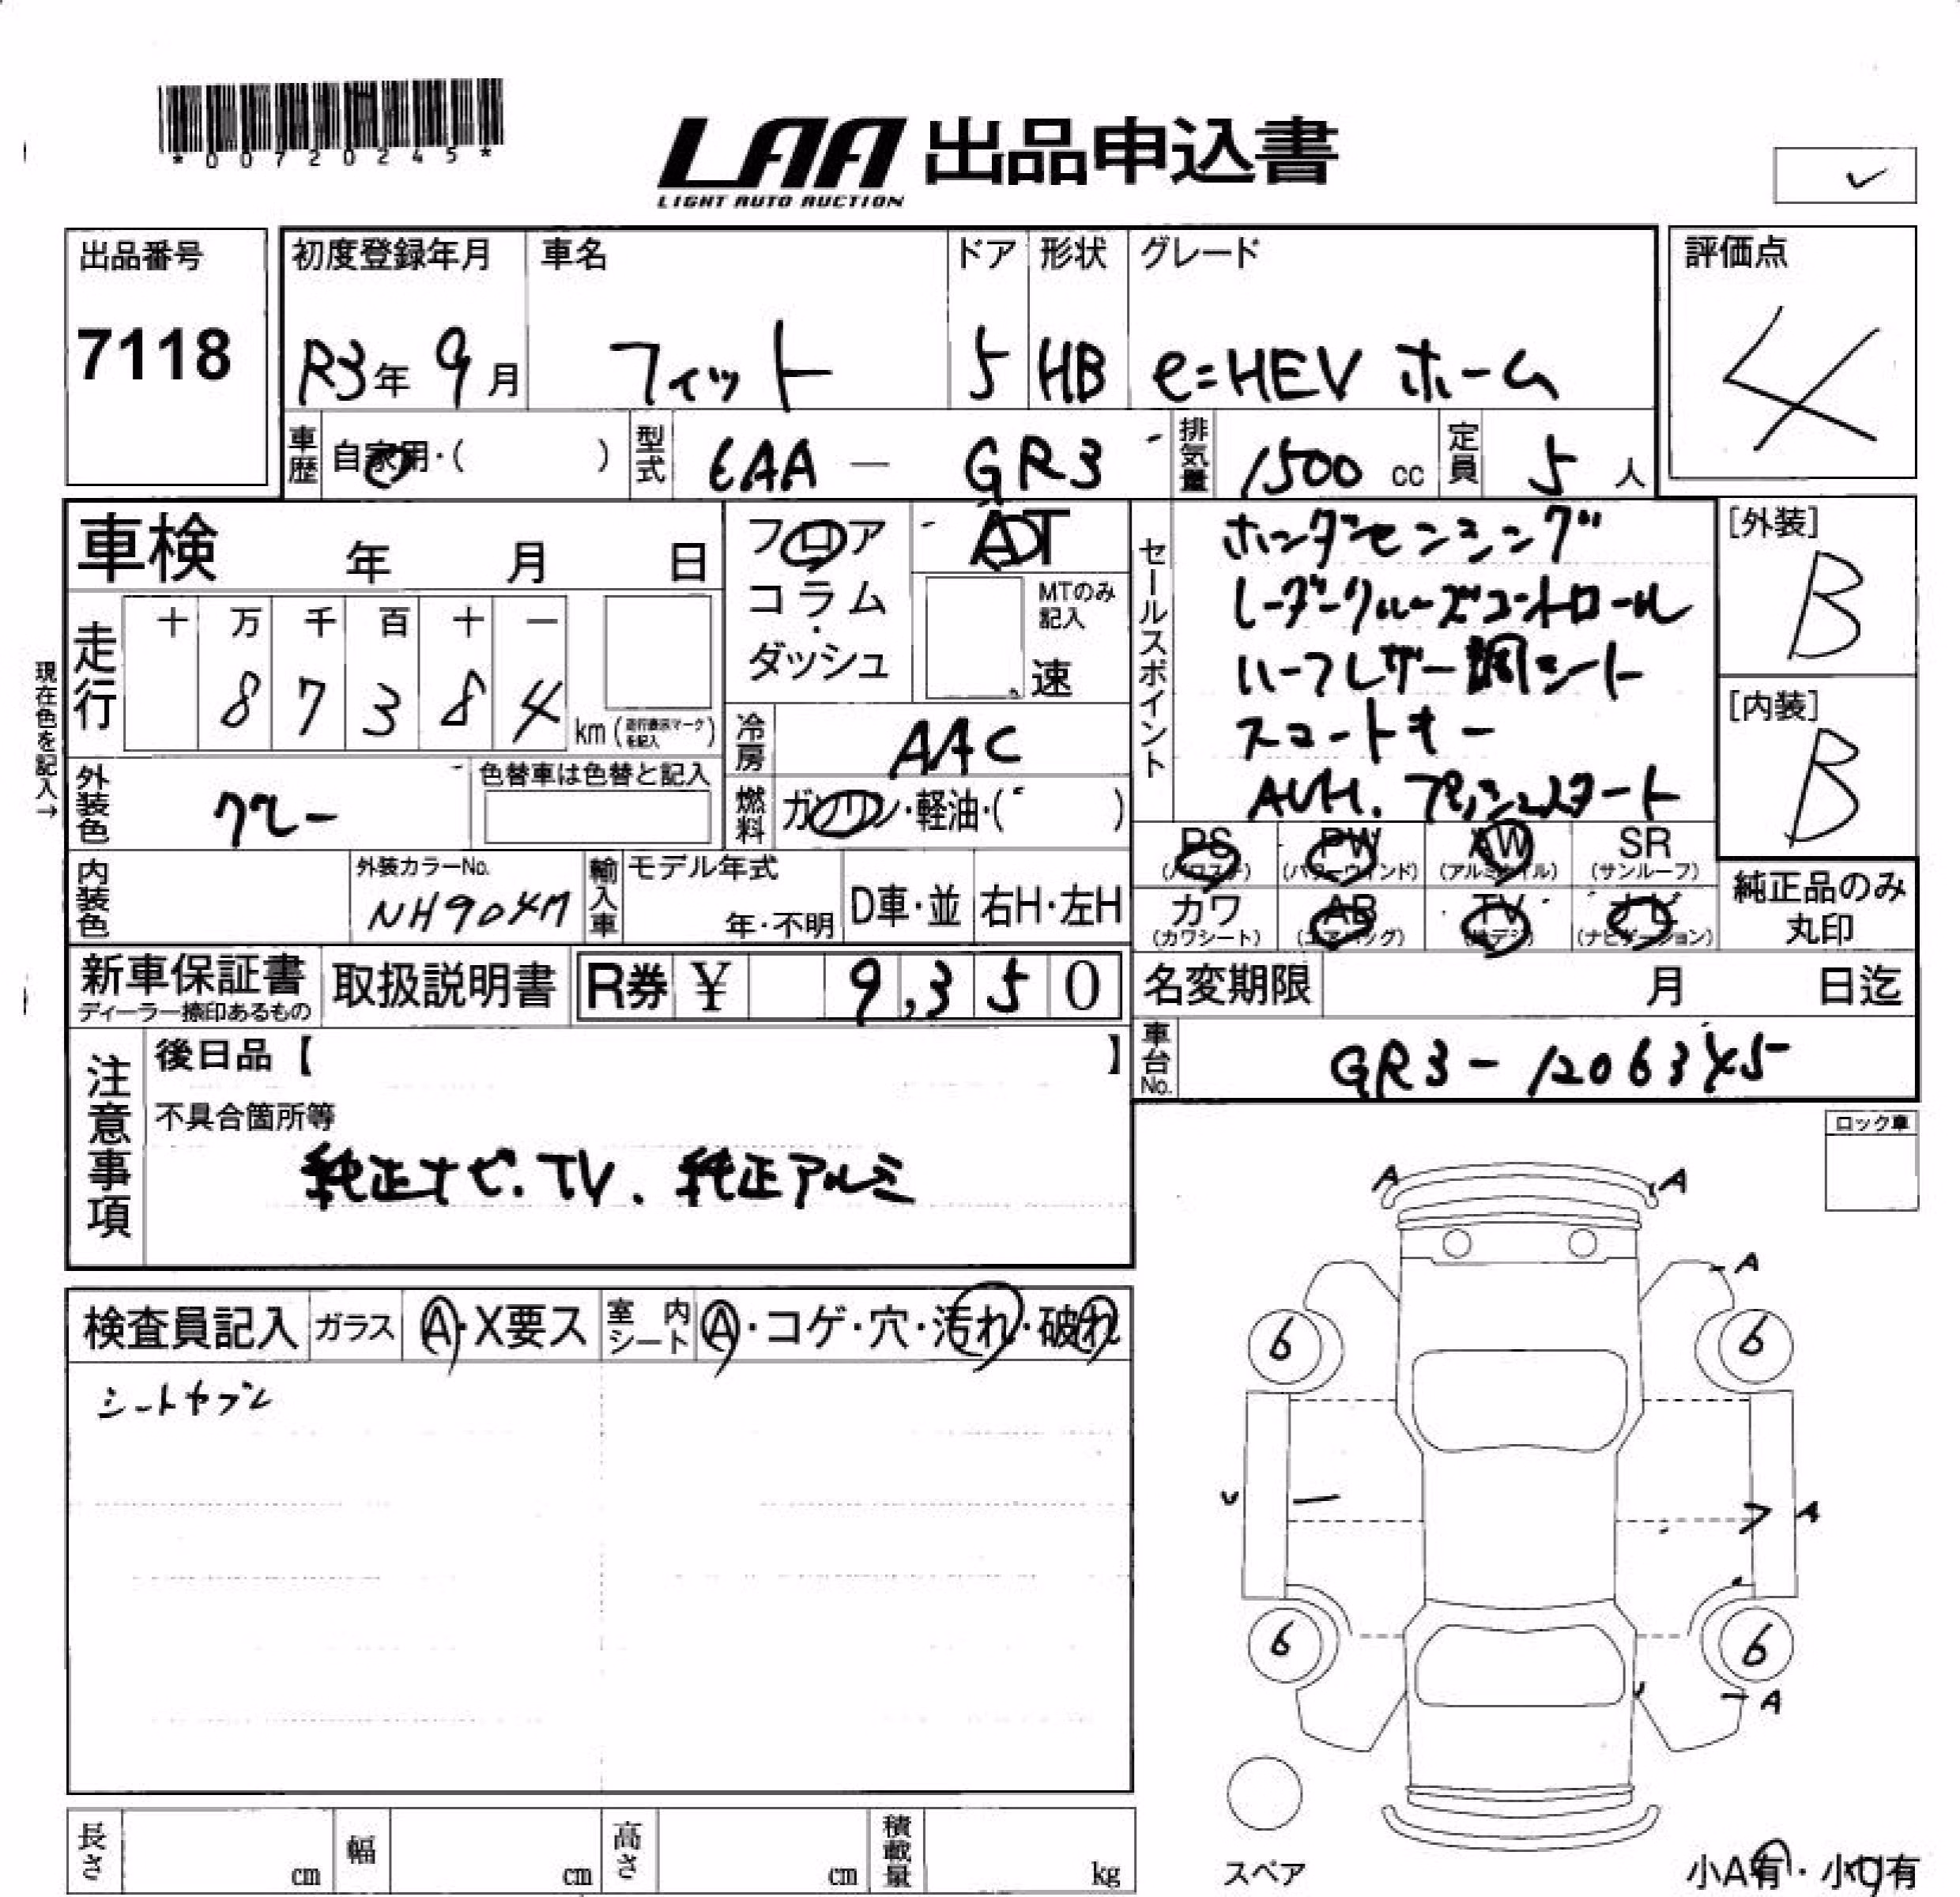 *00720245*
LAA 出品申込書
LIGHT AUTO AUCTION
出品番号
7118
初度登録年月
R3年 9月
車名
フィット
ドア
5
形状
HB
グレード
e=HEV ホーム
評価点
4
車歴
自家用・( )
型式
6AA - GR3
排気量
1500 cc
定員
5 人
車検 年 月 日
フロア
コラム・ダッシュ
AT
MTのみ記入
速
走行
十 万 千 百 十 一
8 7 3 8 4
km (走行表示マークを記入)
現在色を記入→
冷房
AAC
外装色
グレー
色替車は色替と記入
燃料
ガソリン・軽油・( )
セールスポイント
ホンダセンシング
レーダークルーズコントロール
ハーフレザー調シート
スマートキー
プッシュスタート
[外装]
B
[内装]
B
PS
(パワステ)
PW
(パワーウインド)
AW
(アルミホイル)
SR
(サンルーフ)
カワ
(カワシート)
AB
(エアーバッグ)
TV
(地デジ)
ナビ
(ナビゲーション)
純正品のみ
丸印
内装色
外装カラーNo.
NH904M
輸入車
モデル年式
年・不明
D車・並
右H・左H
新車保証書
ディーラー捺印あるもの
取扱説明書
R券 ¥ 9,350
名変期限 月 日迄
車台No.
GR3-1206345
注意事項
後日品【 】
不具合箇所等
純正ナビ.TV. 純正アルミ
ロック車
検査員記入
ガラス
A・X要ス
室内シート
A・コゲ・穴・汚れ・破れ
シートヤブレ
A A
A
6 6
A
6 6
A
スペア
小A有・小U有
長さ cm
幅 cm
高さ cm
積載量 kg